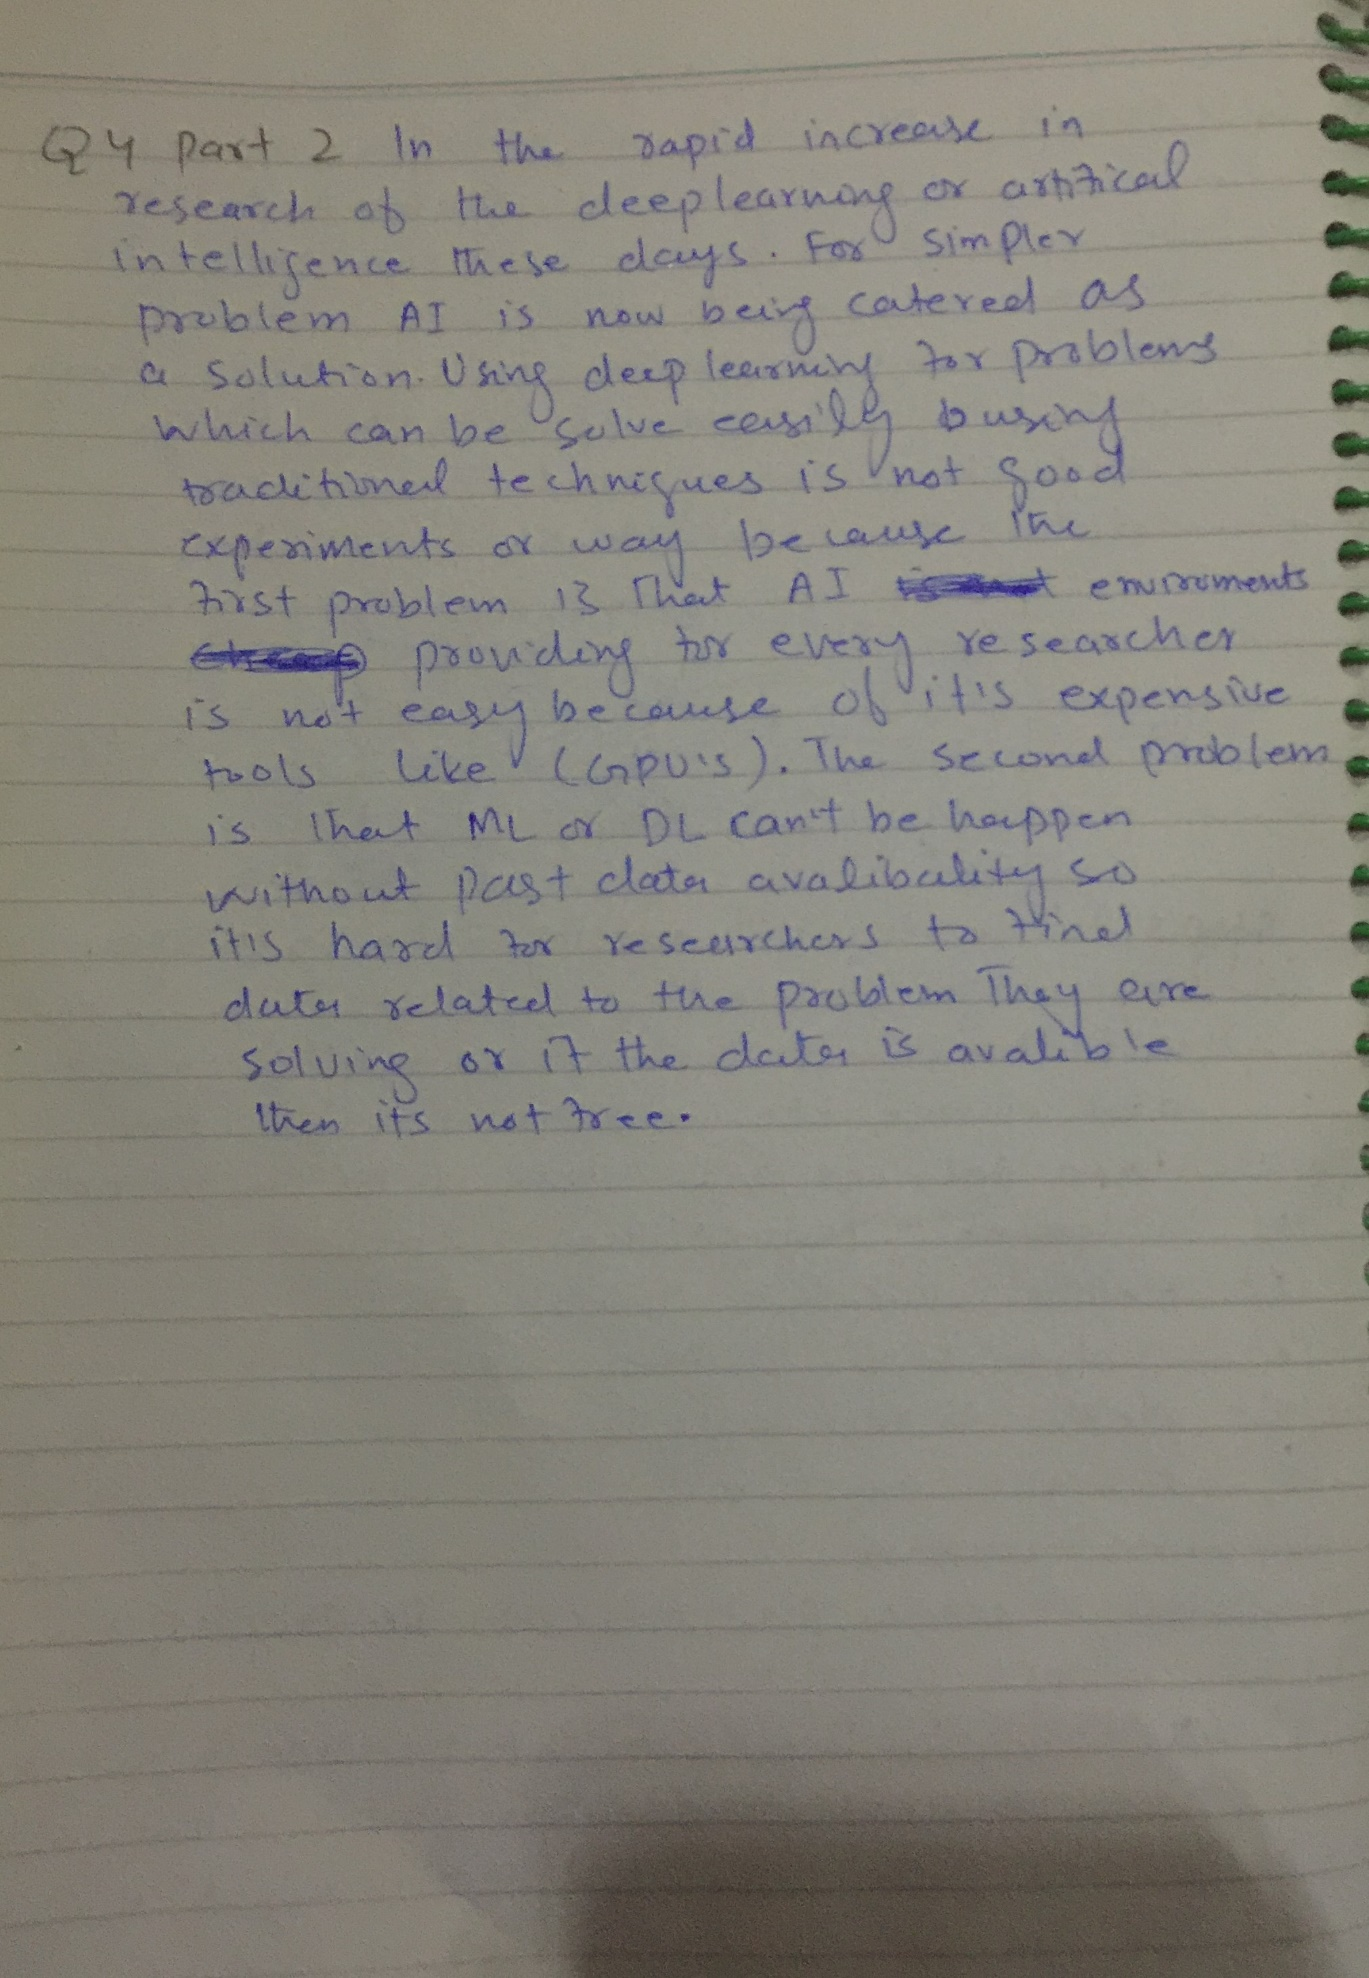 Q4 part 2 In the rapid increase in
research of the deeplearning or artifical
intelligence these days. For simpler
problem AI is now being catered as
a solution. Using deep learning for problems
which can be solve easily busing
traditional techniques is not good
experiments or way because the
first problem is that AI enviroments
providing for every researcher
is not easy because of it's expensive
tools like (GPU's). The second problem
is that ML or DL can't be happen
without past data avalibality so
it's hard for researchers to find
data related to the problem They are
solving or if the data is avalible
then its not free.